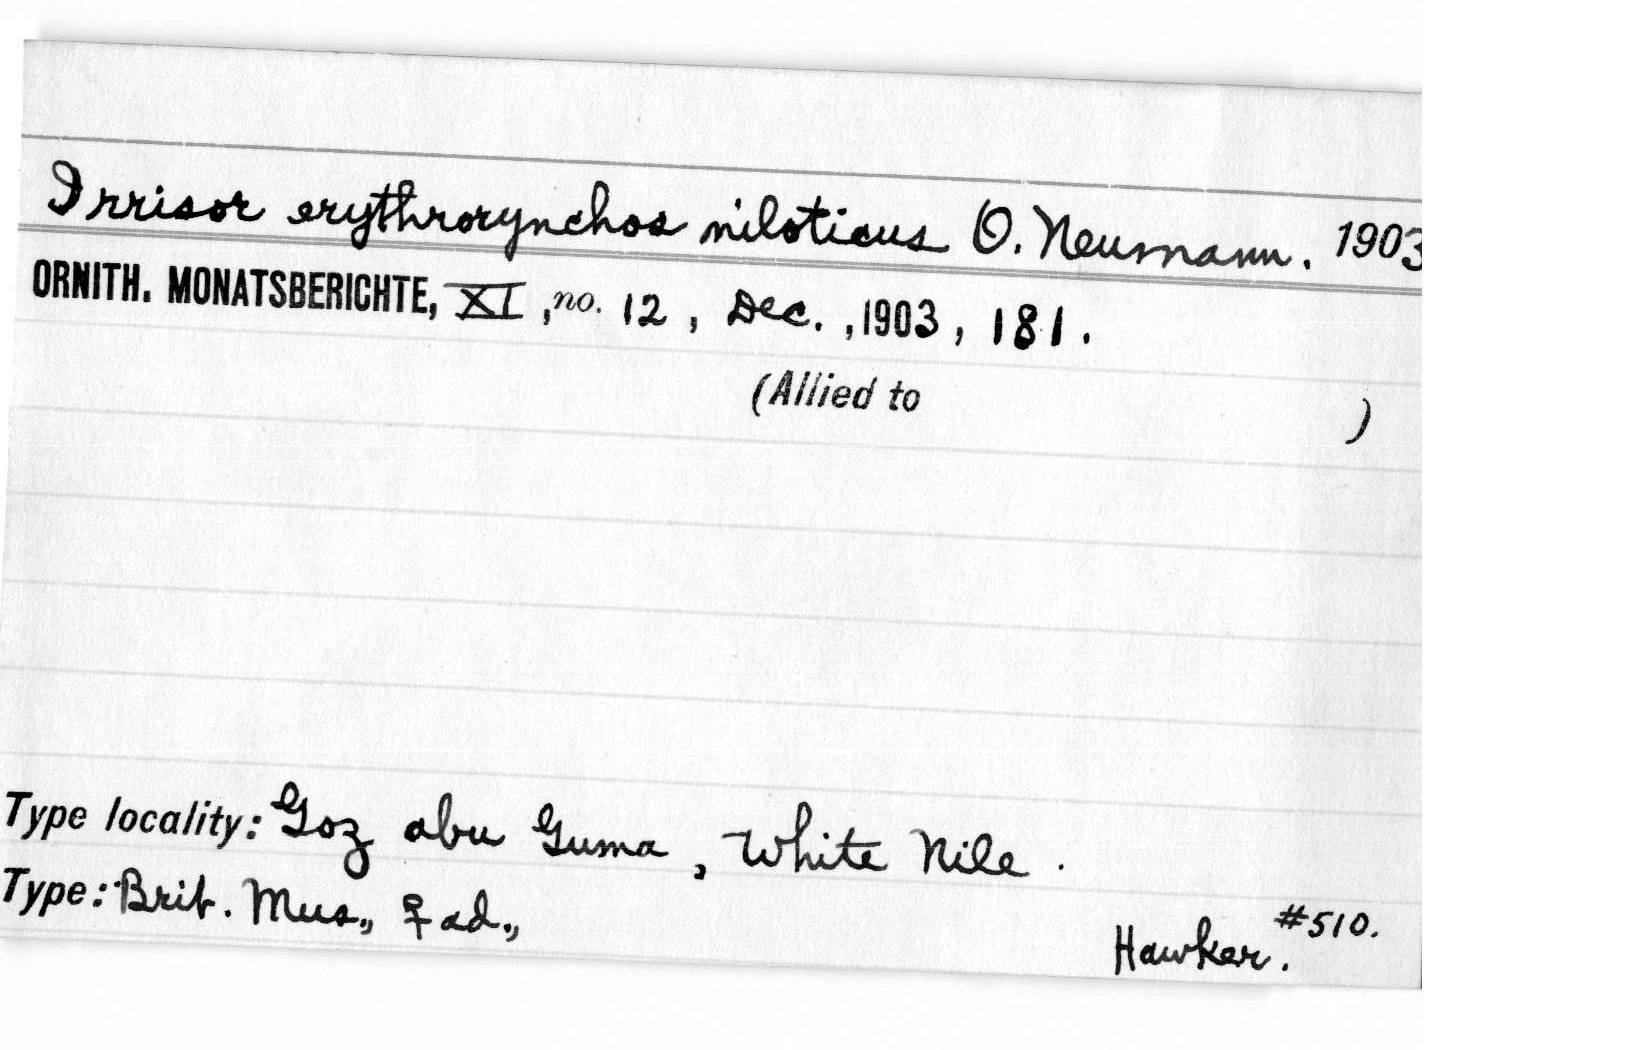 Irrisor erythrorynchos niloticus O. Neumann. 1903
ORNITH. MONATSBERICHTE, XI, no. 12, Dec., 1903, 181.
(Allied to )
Type locality: Goz abu Guma, White Nile.
Type: Brit. Mus., ♀ ad., #510.
Hawker.